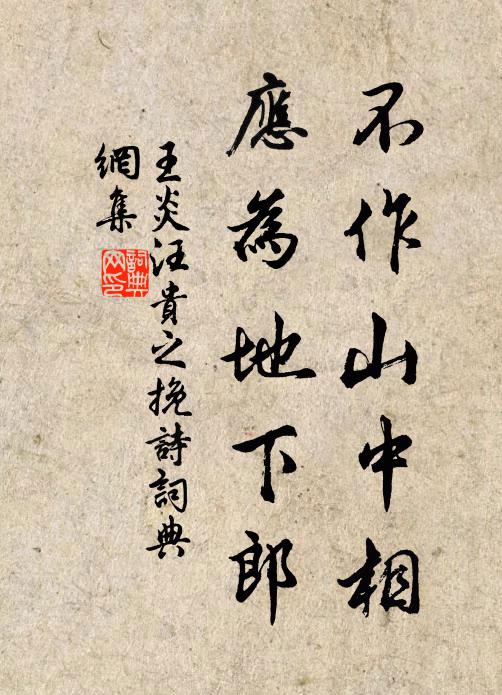 不作山中相
應為地下郎
王炎汪貴之挽詩詞典
網集
詞典
网印